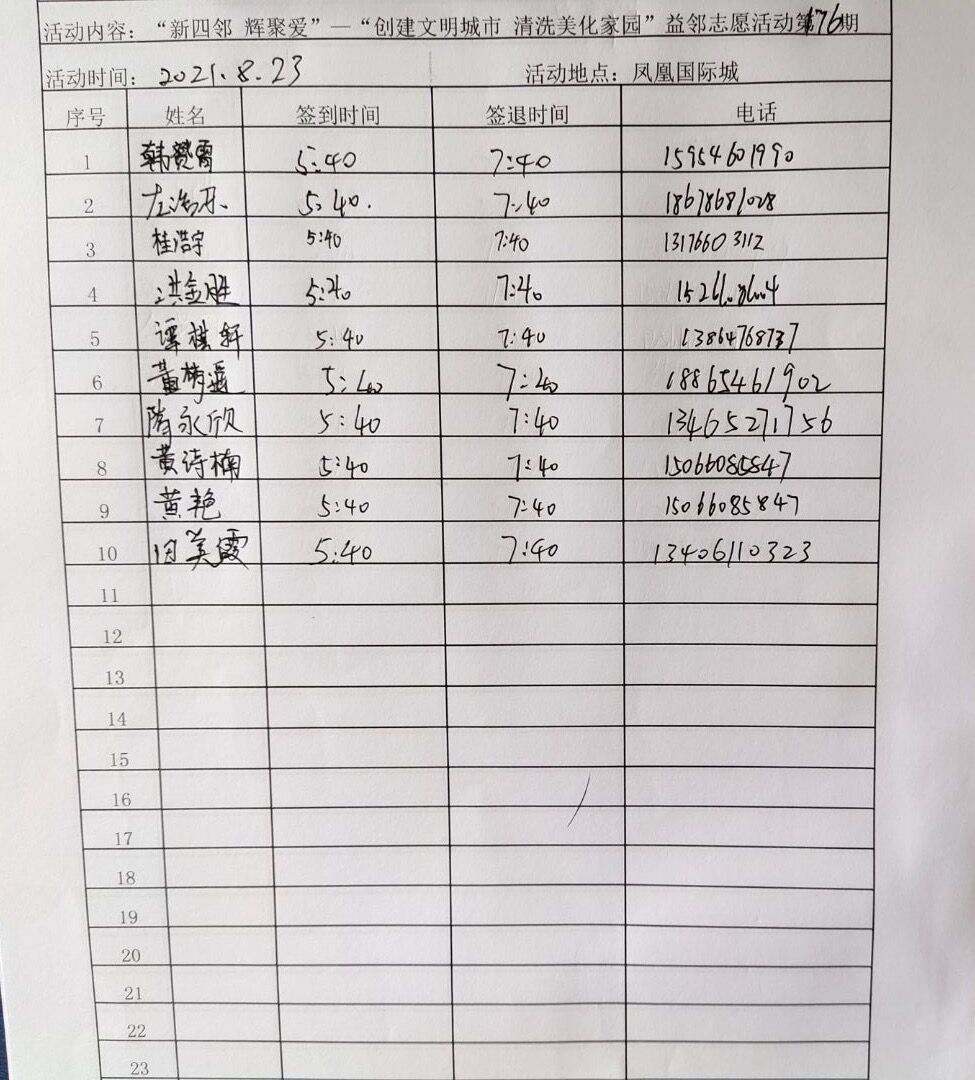 活动内容："新四邻 辉聚爱"—"创建文明城市 清洗美化家园"益邻志愿活动第176期
活动时间：2021.8.23 活动地点：凤凰国际城
序号 姓名 签到时间 签退时间 电话
1 韩赟霄 5:40 7:40 15954601990
2 5:40. 7:40 18678681028
3 桂浩宇 5:40 7:40 13176603112
4 洪金胜 5:40 7:40
5 谭棋轩 5:40 7:40 13864768737
6 5:40 7:40 18865461902
7 隋永欣 5:40 7:40 13465271756
8 黄诗楠 5:40 7:40 15066085847
9 黄艳 5:40 7:40 15066085847
10 美霞 5:40 7:40 13406110323
11
12
13
14
15
16
17
18
19
20
21
22
23